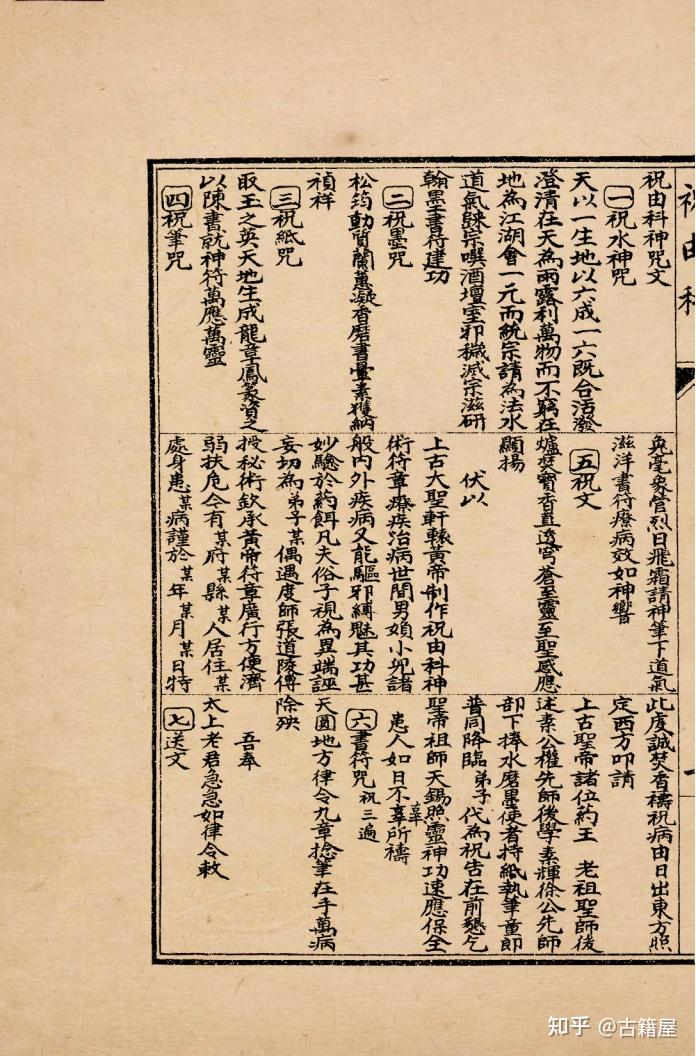 祝由科
祝由科神咒文
一祝水神咒
天以一生地以六成一六既合活潑
澄清在天為雨露利萬物而不窮在
地為江湖會一元而統宗請為法水
道氣歸宗噀酒壇室邪穢滅宗滋研
翰墨書符建功
二祝墨咒
松筠動質蘭蕙凝香磨書雲素獲納
禎祥
三祝紙咒
取玉之英天地生成龍章鳳篆資之
以陳書就神符萬應萬靈
四祝筆咒
兔毫象管烈日飛霜請神筆下道氣
滋洋書符療病效如神響
五祝文
爐焚寶香直透穹蒼至靈至聖感應
顯揚
伏以
上古大聖軒轅黃帝制作祝由科神
術符章療疾治病世間男婦小兒諸
般內外疾病又能驅邪縛魅其功甚
妙驗於葯餌凡夫俗子視為異端誣
妄切為弟子某偶遇度師張道陵傳
授秘術欽承黃帝符章廣行方便濟
弱扶危今有某府某縣某人居住某
處身患某病謹於某年某月某日特
此虔誠焚香禱祝病由日出東方照
定西方叩請
上古聖帝諸位葯王 老祖聖師後
述素公權先師後學素輝徐公先師
部下捧水磨墨使者持紙執筆童郎
普同降臨弟子代為祝告在前懇乞
聖帝祖師天錫照靈神功速應保全
患人如日不辜所禱
辜
六書符咒祝三遍
天圓地方律令九章捻筆在手萬病
除殃
吾奉
太上老君急急如律令敕
七送文
知乎 @古籍屋